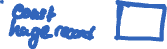 const
huge record